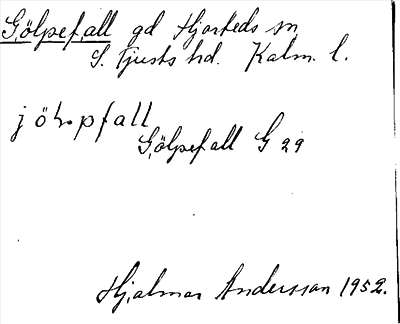 Gölpefall gd Hjorteds sn
S. Tjusts hd. Kalm. l.
jöh.pfall
Gölpefall G 29
Hjalmar Andersson 1952.